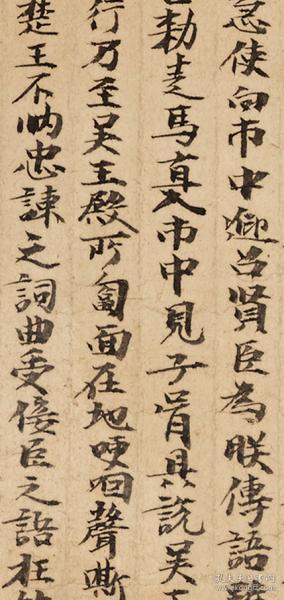 急使向市中迎召賢臣為朕傳語
勑走馬直入市中見子胥具說吳
行乃至吳王殿所匐面在地哽咽聲嘶
楚王不納忠諫之詞曲受佞臣之語枉